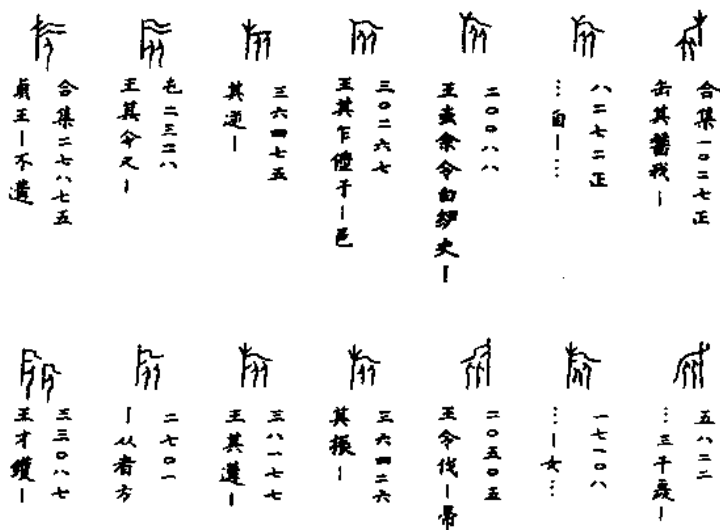 合集一〇二七正
缶其我｜
八二七二正
…｜…
二〇〇八八
王叀余令白史｜
三〇二六七
王其乍僼于｜邑
三六四七五
其逆｜
屯二三二八
王其令又｜
合集二七八七五
貞王｜不遘
五八二二
…三千｜
一七一〇八
…｜女…
二〇五〇五
王令伐｜帚
三六四二六
其振｜
三八一七七
王其遘｜
二七〇一
｜从者方
三三〇八七
王才鑊｜